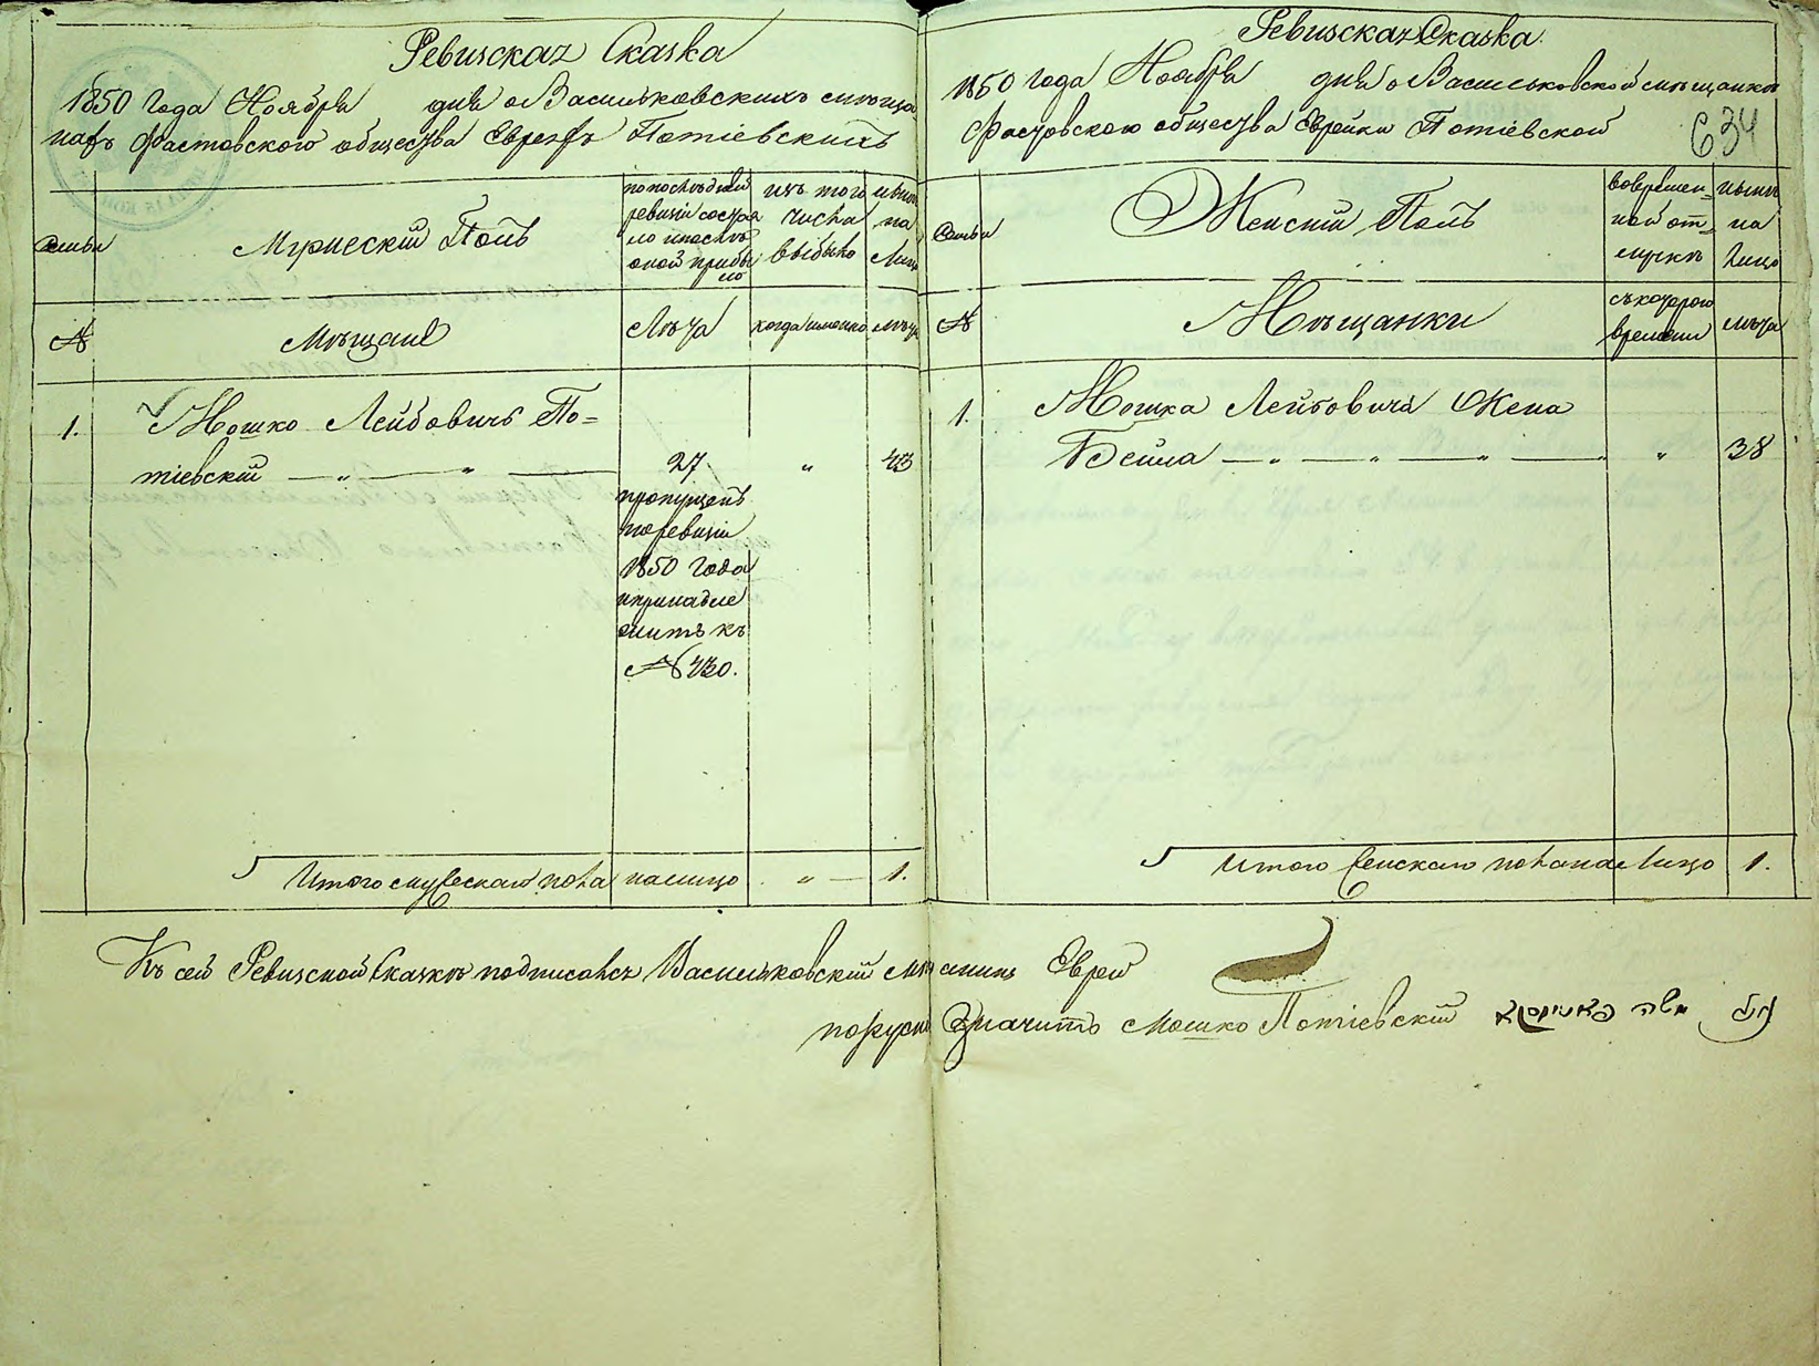 Ревизская Сказка
1850 года Ноября дня о Васильковскихъ мѣща
нахъ Фастовского общества Евреяхъ Потіевскихъ
Семьи
Мужескій Полъ
по послѣдней
ревизіи состоя
ло и послѣ
оной прибы
ло
изъ того
числа
выбыло
нынѣ
на
лицо
№
Мѣщане
Лѣта
когда именно
лѣта
1.
Мошко Лейбовичъ По=
тіевскій — „ — „ —
27
„
43
пропущенъ
по ревизіи
1850 года
и принадле
житъ къ
№ 430.
Итого мужескаго пола на лицо „ — 1.
Ревизская Сказка.
1850 года Ноября дня о Васильковской мѣщанкѣ
Фастовского общества Еврейки Потіевской
634
Семьи
Женскій Полъ
во времен=
ной от=
лучкѣ
нынѣ
на
лицо
№
Мѣщанки
съ котораго
времени
лѣта
1.
Мошка Лейбовича Жена
Бейла — „ — „ — „ — „ „ 38
Итого женскаго пола на лицо 1.
Къ сей Ревизской Сказкѣ подписался Васильковскій мѣщанинъ Еврей
по руски значитъ Мошко Потіевскій משה